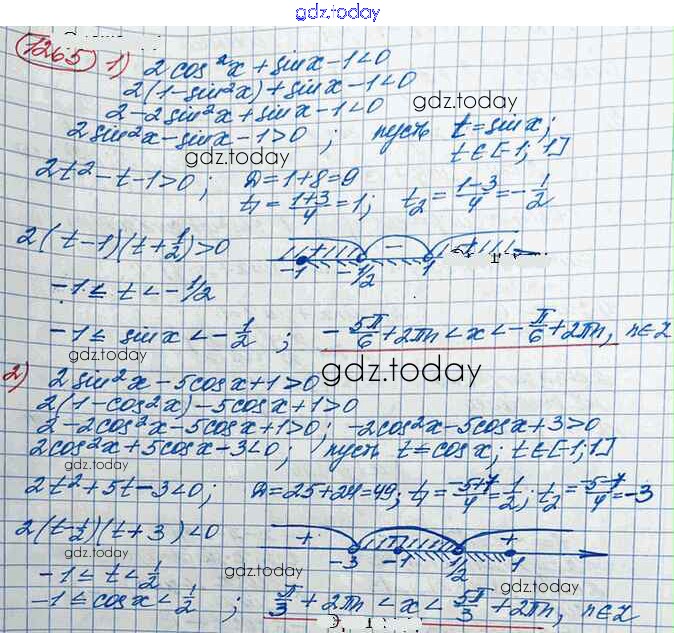 gdz.today
1265) 1) 2cos²x + sinx - 1 < 0
2(1 - sin²x) + sinx - 1 < 0
2 - 2sin²x + sinx - 1 < 0
gdz.today
2sin²x - sinx - 1 > 0 ; пусть t = sinx;
gdz.today
t ∈ [-1; 1]
2t² - t - 1 > 0 ; D = 1 + 8 = 9
t₁ = (1+3)/4 = 1; t₂ = (1-3)/4 = -1/2
2(t - 1)(t + 1/2) > 0
+ - +
-1 -1/2 1
-1 ≤ t < -1/2
-1 ≤ sinx < -1/2 ; -5π/6 + 2πn < x < -π/6 + 2πn, n ∈ Z
gdz.today
gdz.today
2) 2sin²x - 5cosx + 1 > 0
2(1 - cos²x) - 5cosx + 1 > 0
2 - 2cos²x - 5cosx + 1 > 0; -2cos²x - 5cosx + 3 > 0
2cos²x + 5cosx - 3 < 0; пусть t = cosx; t ∈ [-1; 1]
gdz.today
2t² + 5t - 3 < 0; D = 25 + 24 = 49; t₁ = (-5+7)/4 = 1/2; t₂ = (-5-7)/4 = -3
2(t - 1/2)(t + 3) < 0
+ +
gdz.today
-3 -1 1/2 1
-1 ≤ t < 1/2
gdz.today
-1 ≤ cosx < 1/2 ; π/3 + 2πn < x < 5π/3 + 2πn, n ∈ Z
gdz.today